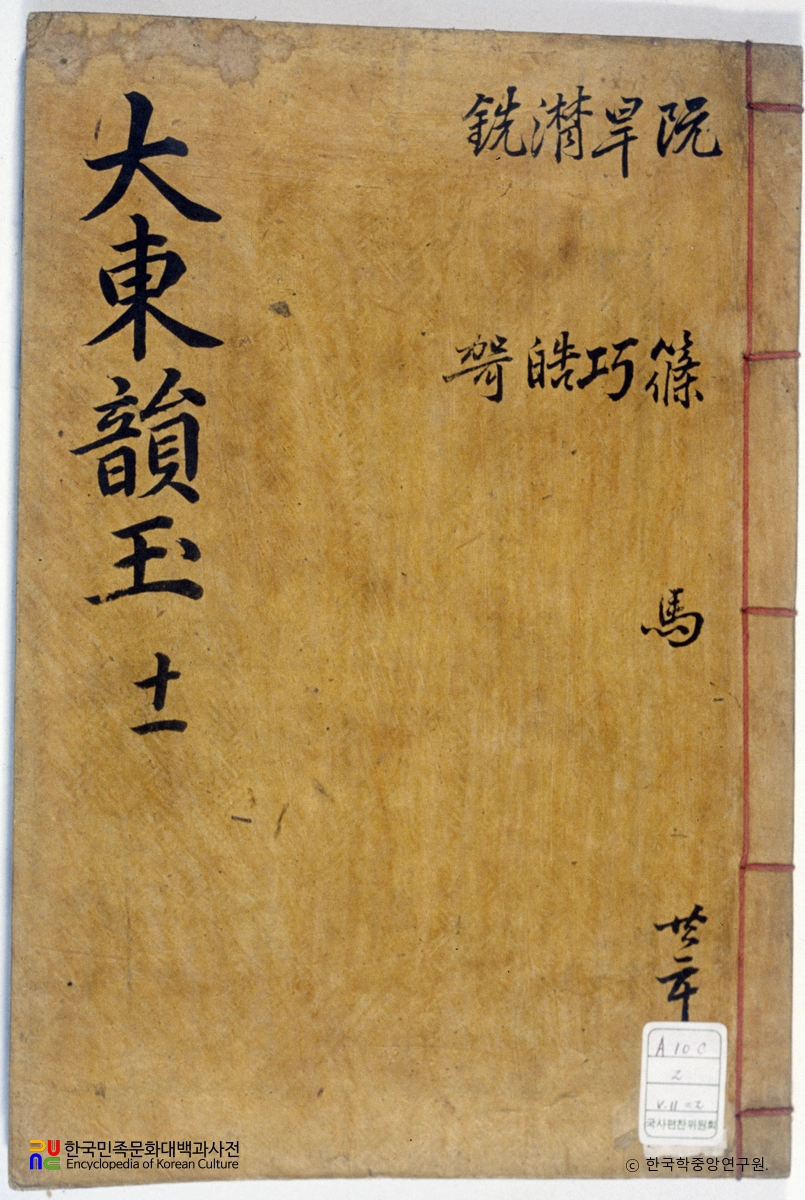 阮旱潸銑
篠巧皓哿
馬
共二十
大東韻玉 十一
A 10 C
2
v.11 =2
국사편찬위원회
한국민족문화대백과사전
Encyclopedia of Korean Culture
ⓒ 한국학중앙연구원.